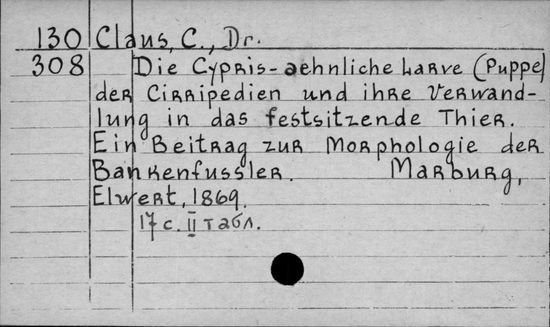 130 Claus, C., Dr.
308 Die Cypris-aehnliche Larve (Puppe)
der Cirripedien und ihre Verwand-
lung in das festsitzende Thier.
Ein Beitrag zur Morphologie der
Bankenfussler. Marburg,
Elwert, 1869.
17 с. II табл.